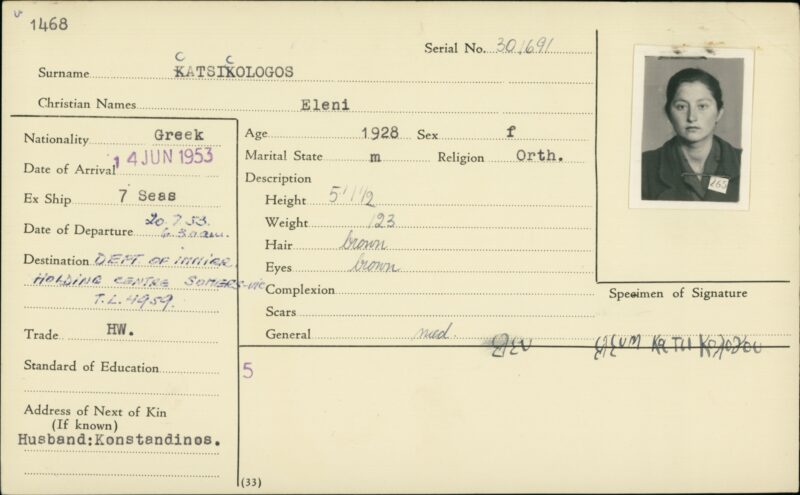 v
1468
Serial No. 301691
C C
Surname KATSIKOLOGOS
Christian Names Eleni
Nationality Greek
Date of Arrival 14 JUN 1953
Ex Ship 7 Seas
Date of Departure 20.7.53. 6.30am.
Destination DEPT OF IMMIGR.
HOLDING CENTRE SOMERS-VIC
T.L. 4959.
Trade HW.
Standard of Education
Address of Next of Kin
(If known)
Husband:Konstandinos.
Age 1928 Sex f
Marital State m Religion Orth.
Description
Height 5' 1 1/2
Weight 123
Hair brown
Eyes brown
Complexion
Scars
General med.
5
(33)
265
Specimen of Signature